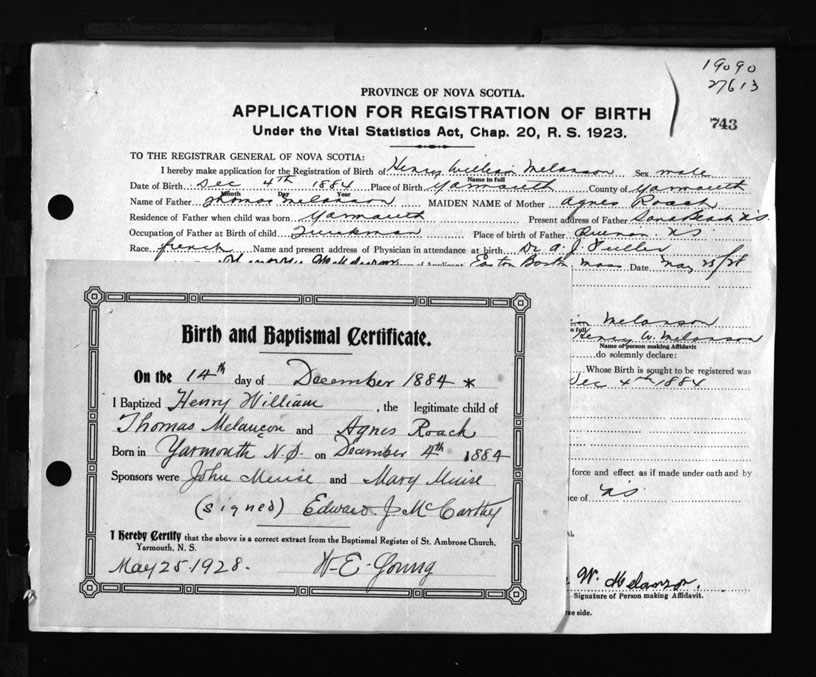 19090
27613
PROVINCE OF NOVA SCOTIA.
743
APPLICATION FOR REGISTRATION OF BIRTH
Under the Vital Statistics Act, Chap. 20, R. S. 1923.
TO THE REGISTRAR GENERAL OF NOVA SCOTIA:
I hereby make application for the Registration of Birth of Henry William Melanson Sex male
Name in full
Date of Birth Dec 4th 1884 Place of Birth Yarmouth County of Yarmouth
Month Day Year
Name of Father Thomas Melanson MAIDEN NAME of Mother Agnes Roach
Residence of Father when child was born Yarmouth Present address of Father
Occupation of Father at Birth of child Truckman Place of birth of Father NS
Race french Name and present address of Physician in attendance at birth Dr A. J. Fuller
of Applicant East Boston Mass Date May 25/28
Melanson
Henry W. Melanson
Name of person making Affidavit
do solemnly declare:
Whose Birth is sought to be registered was
Dec 4th 1884
force and effect as if made under oath and by
ce of
W. Melanson.
Signature of Person making Affidavit.
se side.
Birth and Baptismal Certificate.
On the 14th day of December 1884 *
I Baptized Henry William, the legitimate child of
Thomas Melançon and Agnes Roach
Born in Yarmouth N.S. on December 4th 1884
Sponsors were John Muise and Mary Muise
(signed) Edward J McCarthy
I Hereby Certify that the above is a correct extract from the Baptismal Register of St. Ambrose Church,
Yarmouth, N. S.
May 25 1928. W-E-Young